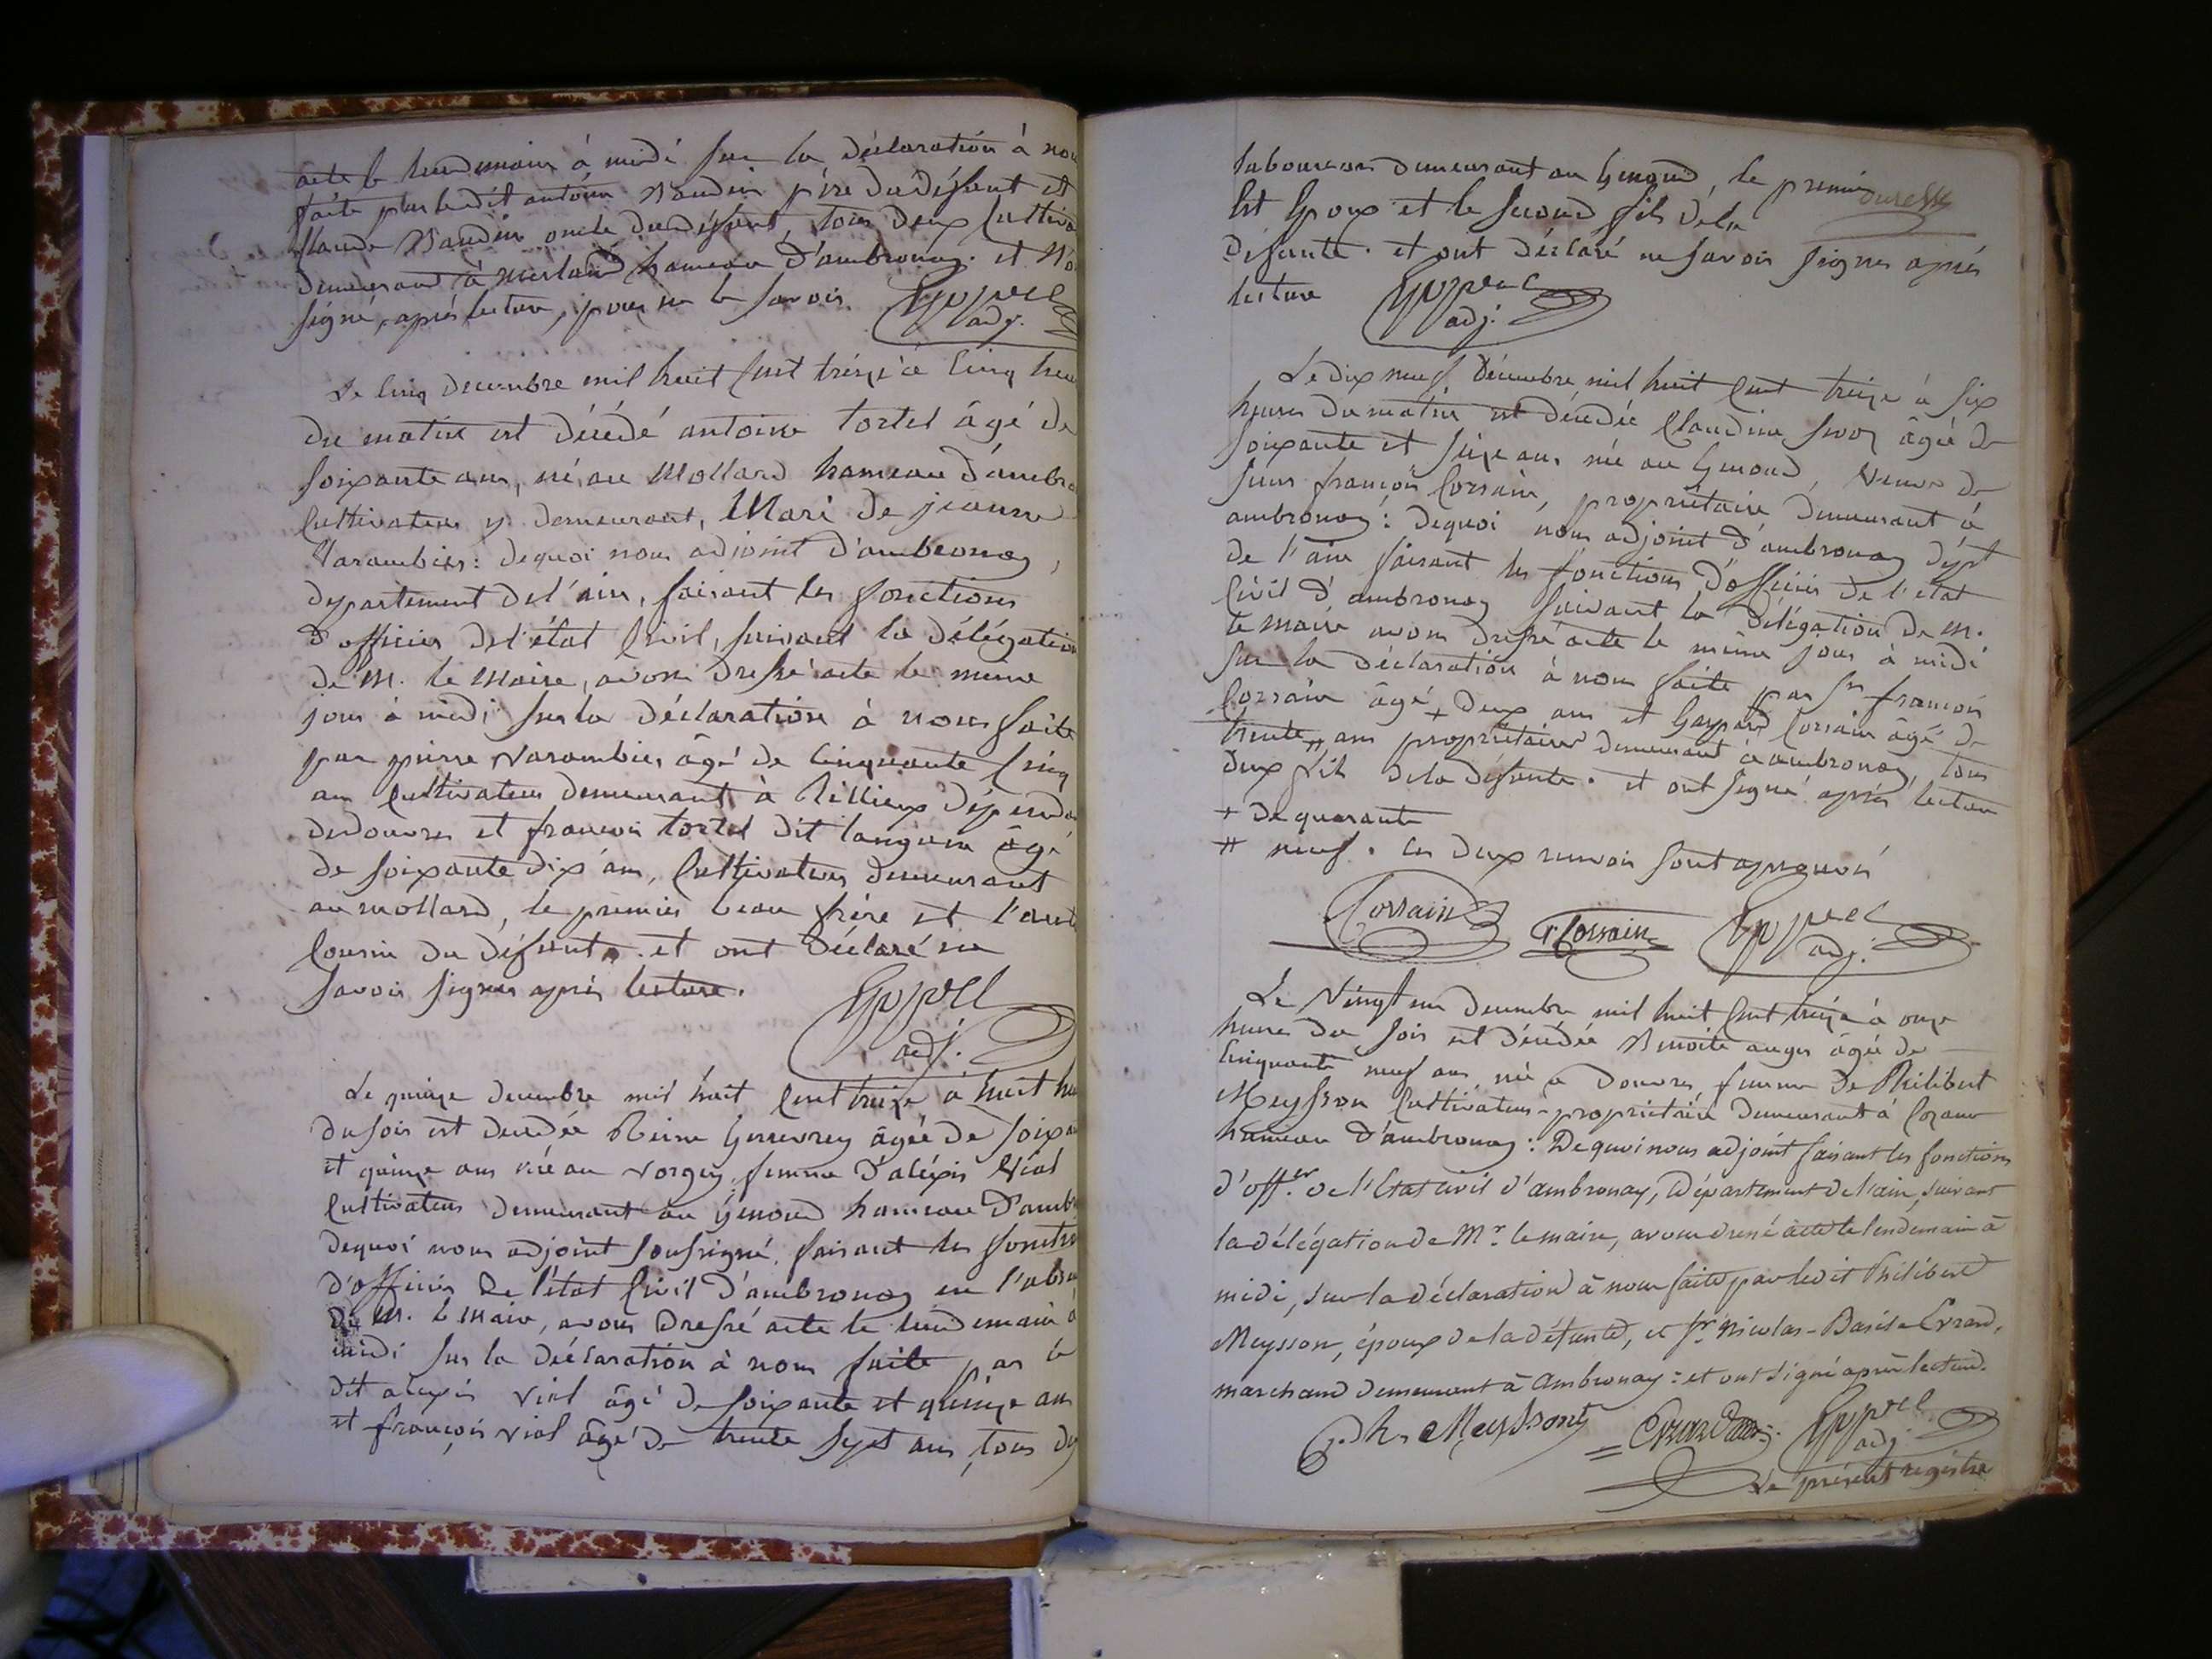 acte le lendemain à midi sur la déclaration à nou
faite par ledit antoine Vaudin père dudéfunt et
Claude Vaudin oncle dudéfunt, tous deux Cultiva
demeurant à merland hameau d'ambronay. et n'o
signé, après lecture, pour ne le savoir
adj.
Le cinq decembre mil huit Cent treize à Cinq heu
du matin est décédé antoine tortel âgé de
soixante ans, né au Mollard hameau d'ambro
Cultivateur y demeurant, Mari de jeanne
Varambier: dequoi nous adjoint d'ambronay,
département del'ain, faisant les fonctions
d'officier del'état Civil, suivant la délégation
de M. le Maire, avons dressé acte le même
jour à midi sur la déclaration à nous faite
par pierre varambier âgé de Cinquante Cinq
ans Cultivateur demeurant à
dedouvres et françois tortel dit âgé
de soixante dix ans, Cultivateur demeurant
au mollard, le premier beau frère et l'autr
Cousin du défunt. et ont déclaré ne
savoir signer après lecture.
adj.
Le quinze decembre mil huit Cent treize à huit he
dusoir est decedée Reine âgée de soixan
et quinze ans née au femme d'alexis Vial
Cultivateur demeurant au Genoud hameau d'ambr
dequoi nous adjoint soussigné, faisant les fonctio
d'officier De l'état Civil d'ambronay en l'abse
de M. le Maire, avons Dressé acte le lendemain à
midi sur la déclaration à nous faite par le
dit alexis vial âgé de soixante et quinze ans
et françois vial âgé de trente sept ans, tous d
laboureurs demeurant au Genoud, le premier
Est Epoux et le second fils dela
défunte. et ont déclaré ne savoir signer après
lecture
adj.
Le dix neuf Décembre mil huit Cent treize à six
heures du matin est décédée Claudine âgée de
soixante et seize ans née au Genoud, Veuve de
sieur françois Corsain, propriétaire demeurant à
ambronay: dequoi nous adjoint d'ambronay dépt
de l'ain faisant les fonctions d'officier de l'etat
Civil d'ambronay suivant la Délégation de M.
le maire avons dressé acte le même jour à midi
sur la déclaration à nous faite par Sr françois
Corsain âgé + deux ans et Gaspard Corsain âgé de
trente # ans propriétaires demeurant à ambronay, tous
deux fils dela defunte. et ont signé après lecture
+ De quarante
# neuf. les deux renvois sont approuvés
Corsain Corsain adj.
Le Vingt un decembre mil huit Cent treize à onze
heures du soir est décédée Benoite auger âgée de
Cinquante neuf ans née à Douvres, femme de Philibert
Meysson Cultivateur-propriétaire demeurant à
hameau d'ambronay: De quoi nous adjoint faisant les fonctions
d'offer. de l'Etat civil d'ambronay, Département de l'ain, suivant
la délégation de Mr. le maire, avons dressé acte le lendemain à
midi, sur la déclaration à nous faite par ledit Philibert
Meysson, époux de la défunte, et Sr. Nicolas-Basile Evrard,
marchand demeurant à Ambronay: et ont signé après lecture.
Ph. Meysson Evrard adj
Le présent registre